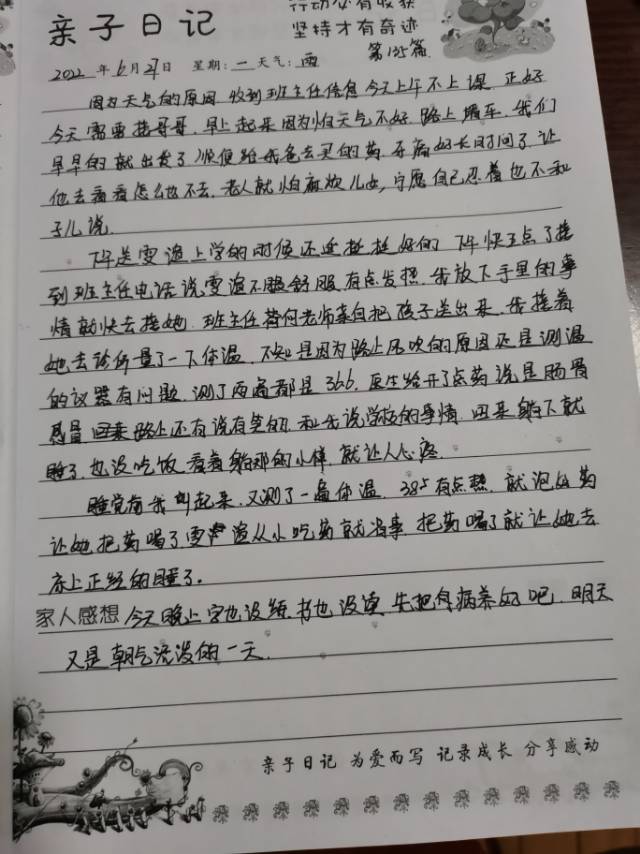 亲子日记
行动必有收获
坚持才有奇迹
第135篇
2022年6月27日 星期:一 天气:雨
因为天气的原因 收到班主任信息 今天上午不上课 正好
今天需要接哥哥. 早上起来因为怕天气不好 路上堵车. 我们
早早的就出发了 顺便给我爸去买的药. 牙痛好长时间了 让
他去看看怎么他不去. 老人就怕麻烦儿女, 宁愿自己忍着也不和
子儿说.
下午送雯谊上学的时候还连挺挺好的 下午快五点了接
到班主任电话 说雯谊不服舒服 有点发热. 我放下手里的事
情就快去接她. 班主任替何老师亲自把孩子送出来. 我接着
她去诊所量了一下体温. 不知是因为路上风吹的原因还是测温
的仪器有问题. 测了两遍都是366. 医生给开了点药 说是肠胃
感冒 回来路上还有说有笑的. 和我说学校的事情. 回来躺下就
睡了. 也没吃饭. 看着躺那的小样 就让人心疼.
睡觉前我叫起来. 又测了一遍体温. 385 有点热. 就泡好药
让她把药喝了 雯谊从小吃药就省事. 把药喝了就让她去
床上正经的睡了.
家人感想 今天晚上字也没练. 书也没读 先把身病养好吧. 明天
又是朝气活泼的一天.
亲子日记 为爱而写 记录成长 分享感动